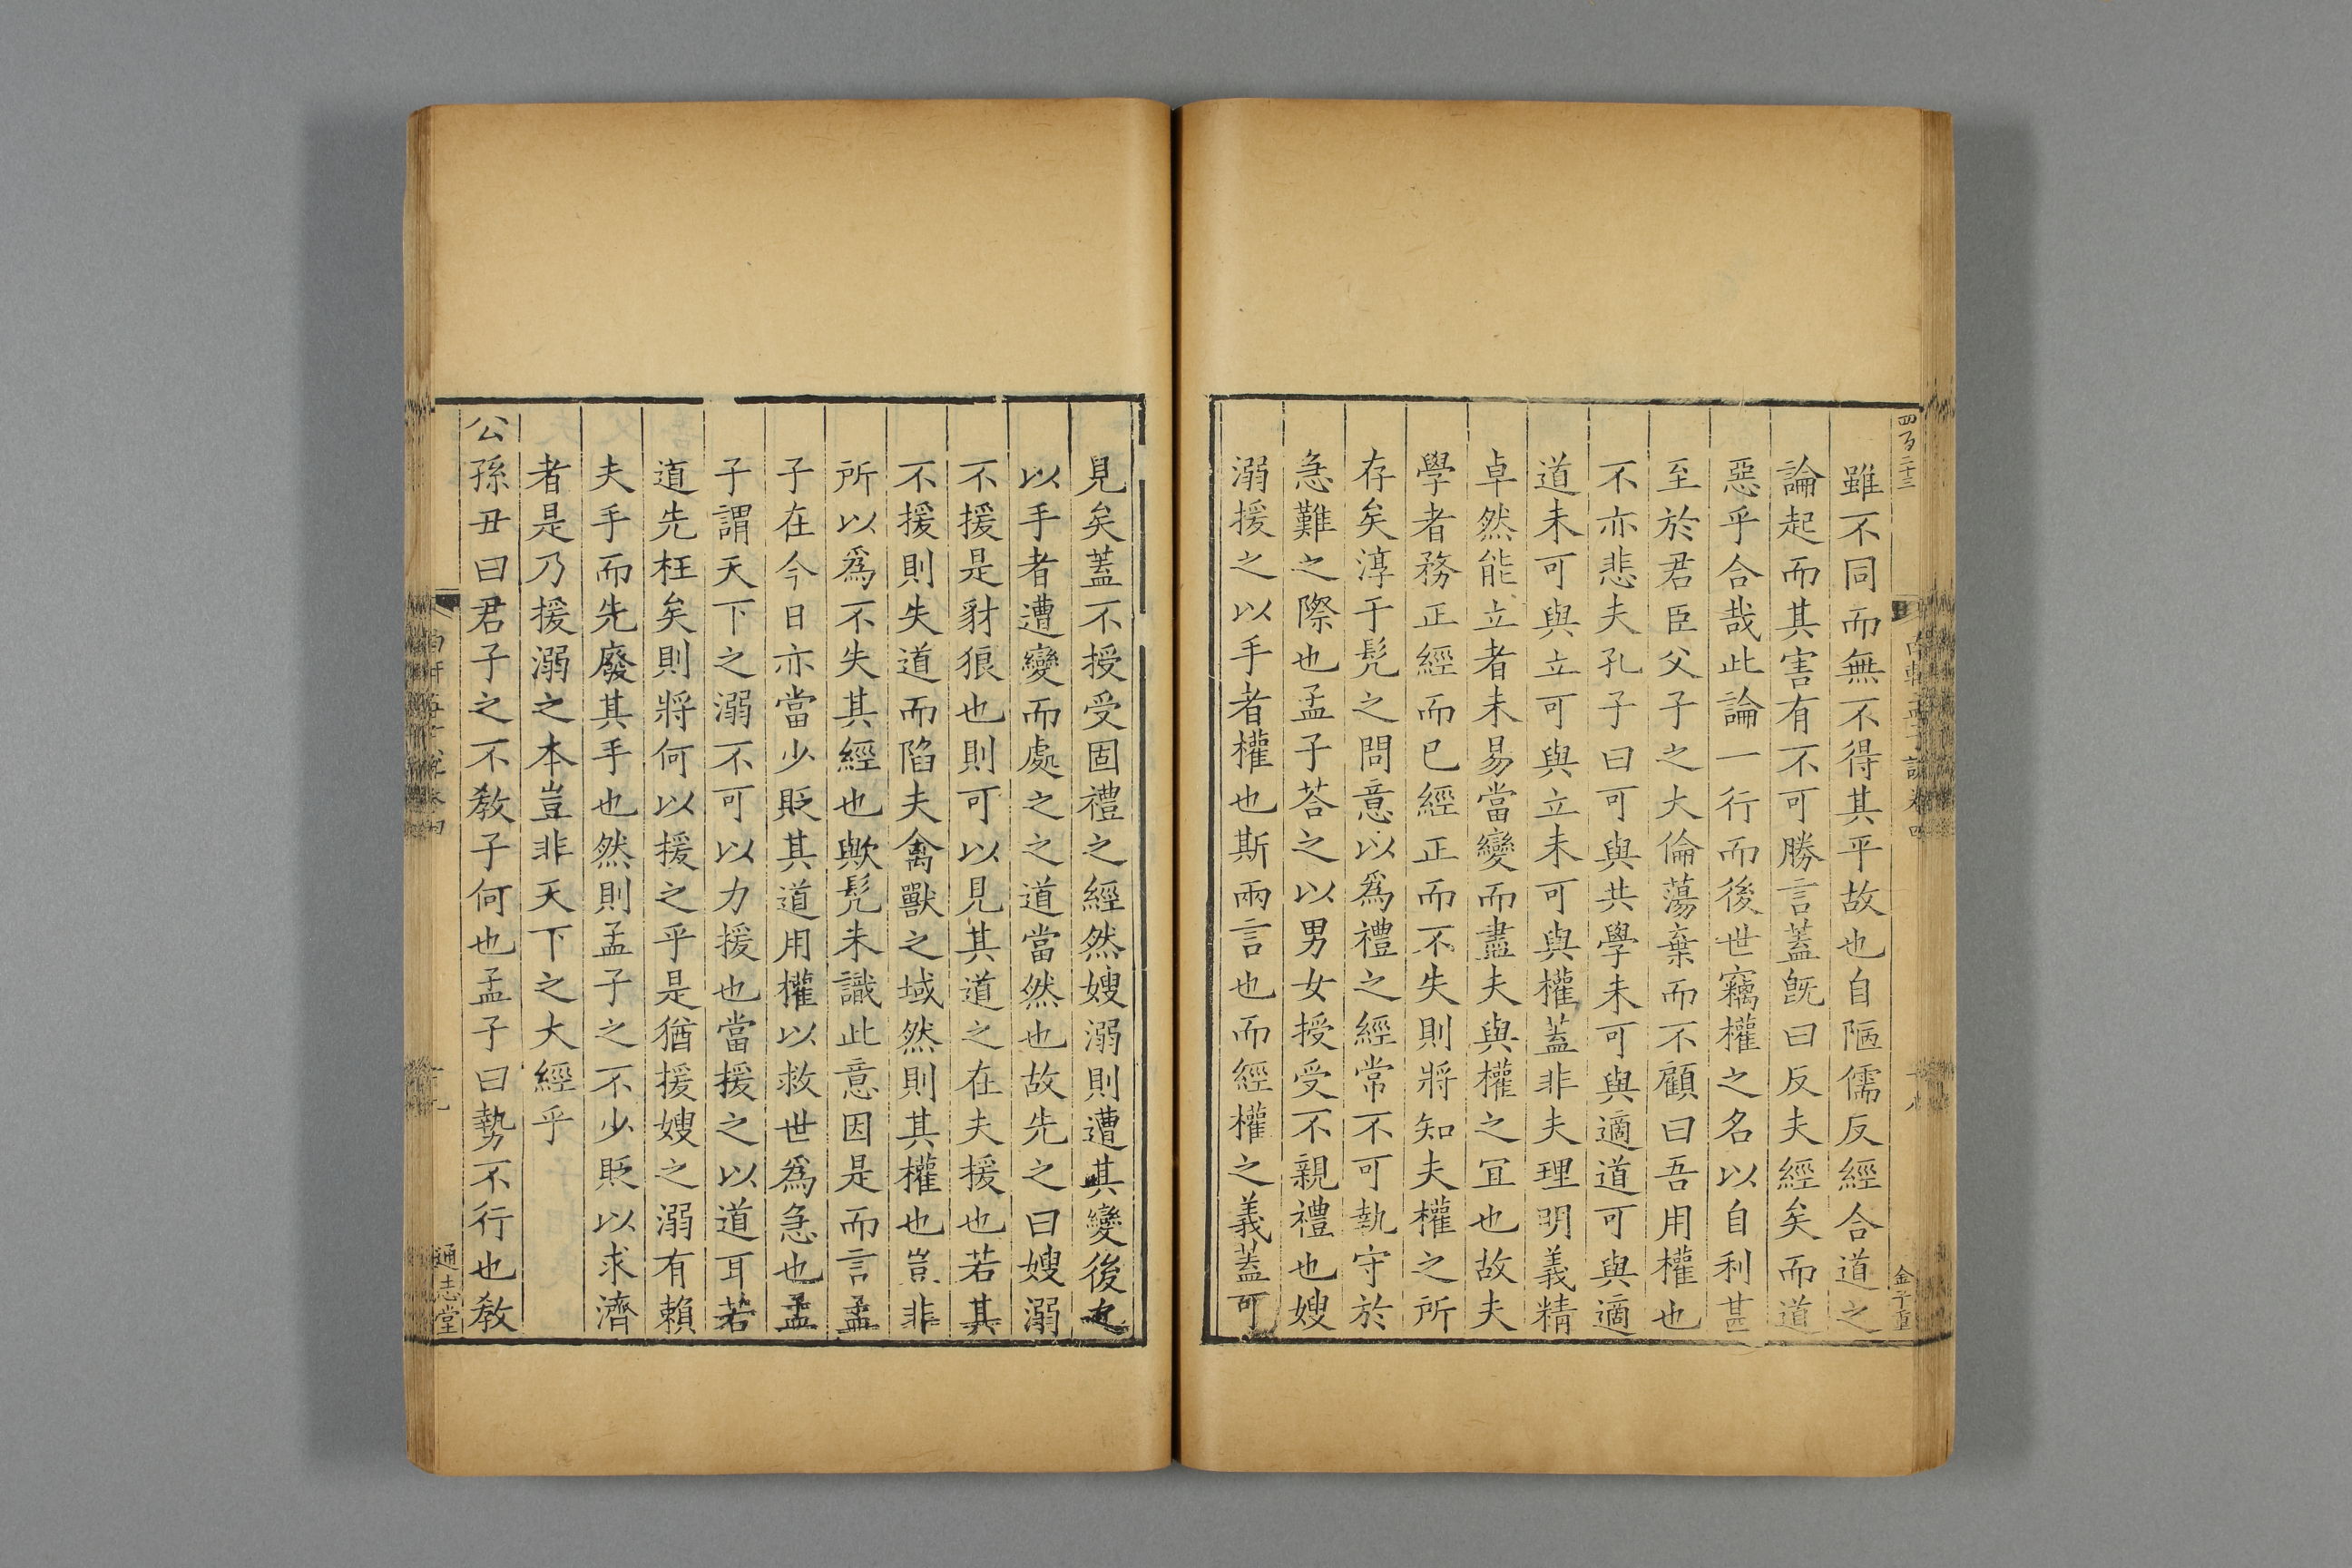 四百二十三
南軒孟子說卷四
十八
金子重
雖不同而無不得其平故也自陋儒反經合道之
論起而其害有不可勝言蓋旣曰反夫經矣而道
惡乎合哉此論一行而後世竊權之名以自利甚
至於君臣父子之大倫蕩棄而不顧曰吾用權也
不亦悲夫孔子曰可與共學未可與適道可與適
道未可與立可與立未可與權蓋非夫理明義精
卓然能立者未易當變而盡夫與權之冝也故夫
學者務正經而已經正而不失則將知夫權之所
存矣淳于髡之問意以爲禮之經常不可執守於
急難之際也孟子荅之以男女授受不親禮也嫂
溺援之以手者權也斯兩言也而經權之義蓋可
見矣蓋不授受固禮之經然嫂溺則遭其變後之
以手者遭變而處之之道當然也故先之曰嫂溺
不援是豺狼也則可以見其道之在夫援也若其
不援則失道而陷夫禽獸之域然則其權也豈非
所以爲不失其經也歟髡未識此意因是而言孟
子在今日亦當少貶其道用權以救世爲急也孟
子謂天下之溺不可以力援也當援之以道耳若
道先枉矣則將何以援之乎是猶援嫂之溺有賴
夫手而先廢其手也然則孟子之不少貶以求濟
者是乃援溺之本豈非天下之大經乎
公孫丑曰君子之不敎子何也孟子曰勢不行也敎
通志堂